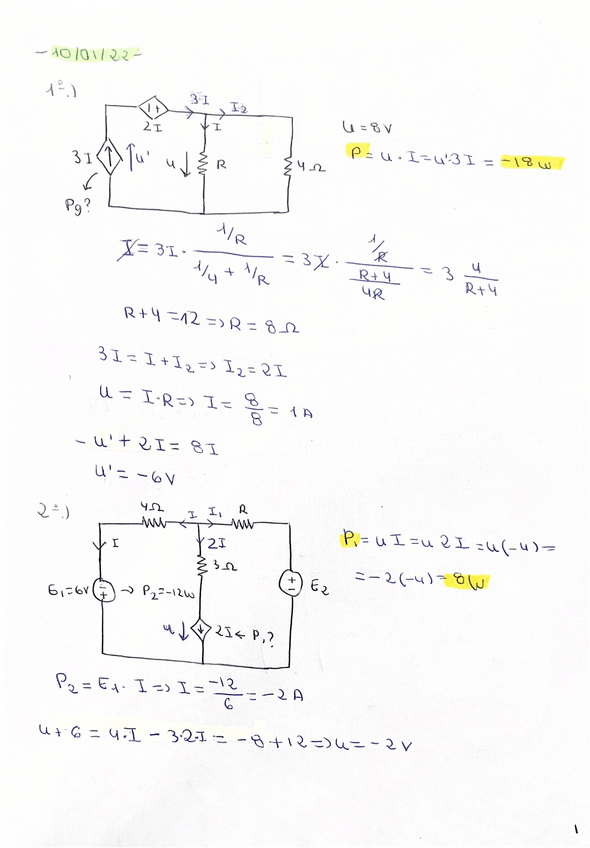 - 10/01/22 -
1º.)
3I I₂
2I I
3I u' u R 4Ω
Pg?
u = 8V
P = u · I = u'·3I = -18w
I = 3I · (1/R)/(1/4 + 1/R) = 3I · (1/R)/((R+4)/4R) = 3 4/(R+4)
R+4 = 12 => R = 8Ω
3I = I + I₂ => I₂ = 2I
u = I·R => I = 8/8 = 1A
- u' + 2I = 8I
u' = -6V
2º.)
4Ω I I₁ R
I 2I
3Ω
E₁=6V → P₂=-12w E₂
u 2I ← P₁?
P₁ = u I = u 2I = u(-4) =
= -2(-4) = 8w
P₂ = E₁ · I => I = -12/6 = -2A
u + 6 = 4·I - 3·2·I = -8 + 12 => u = -2V
1